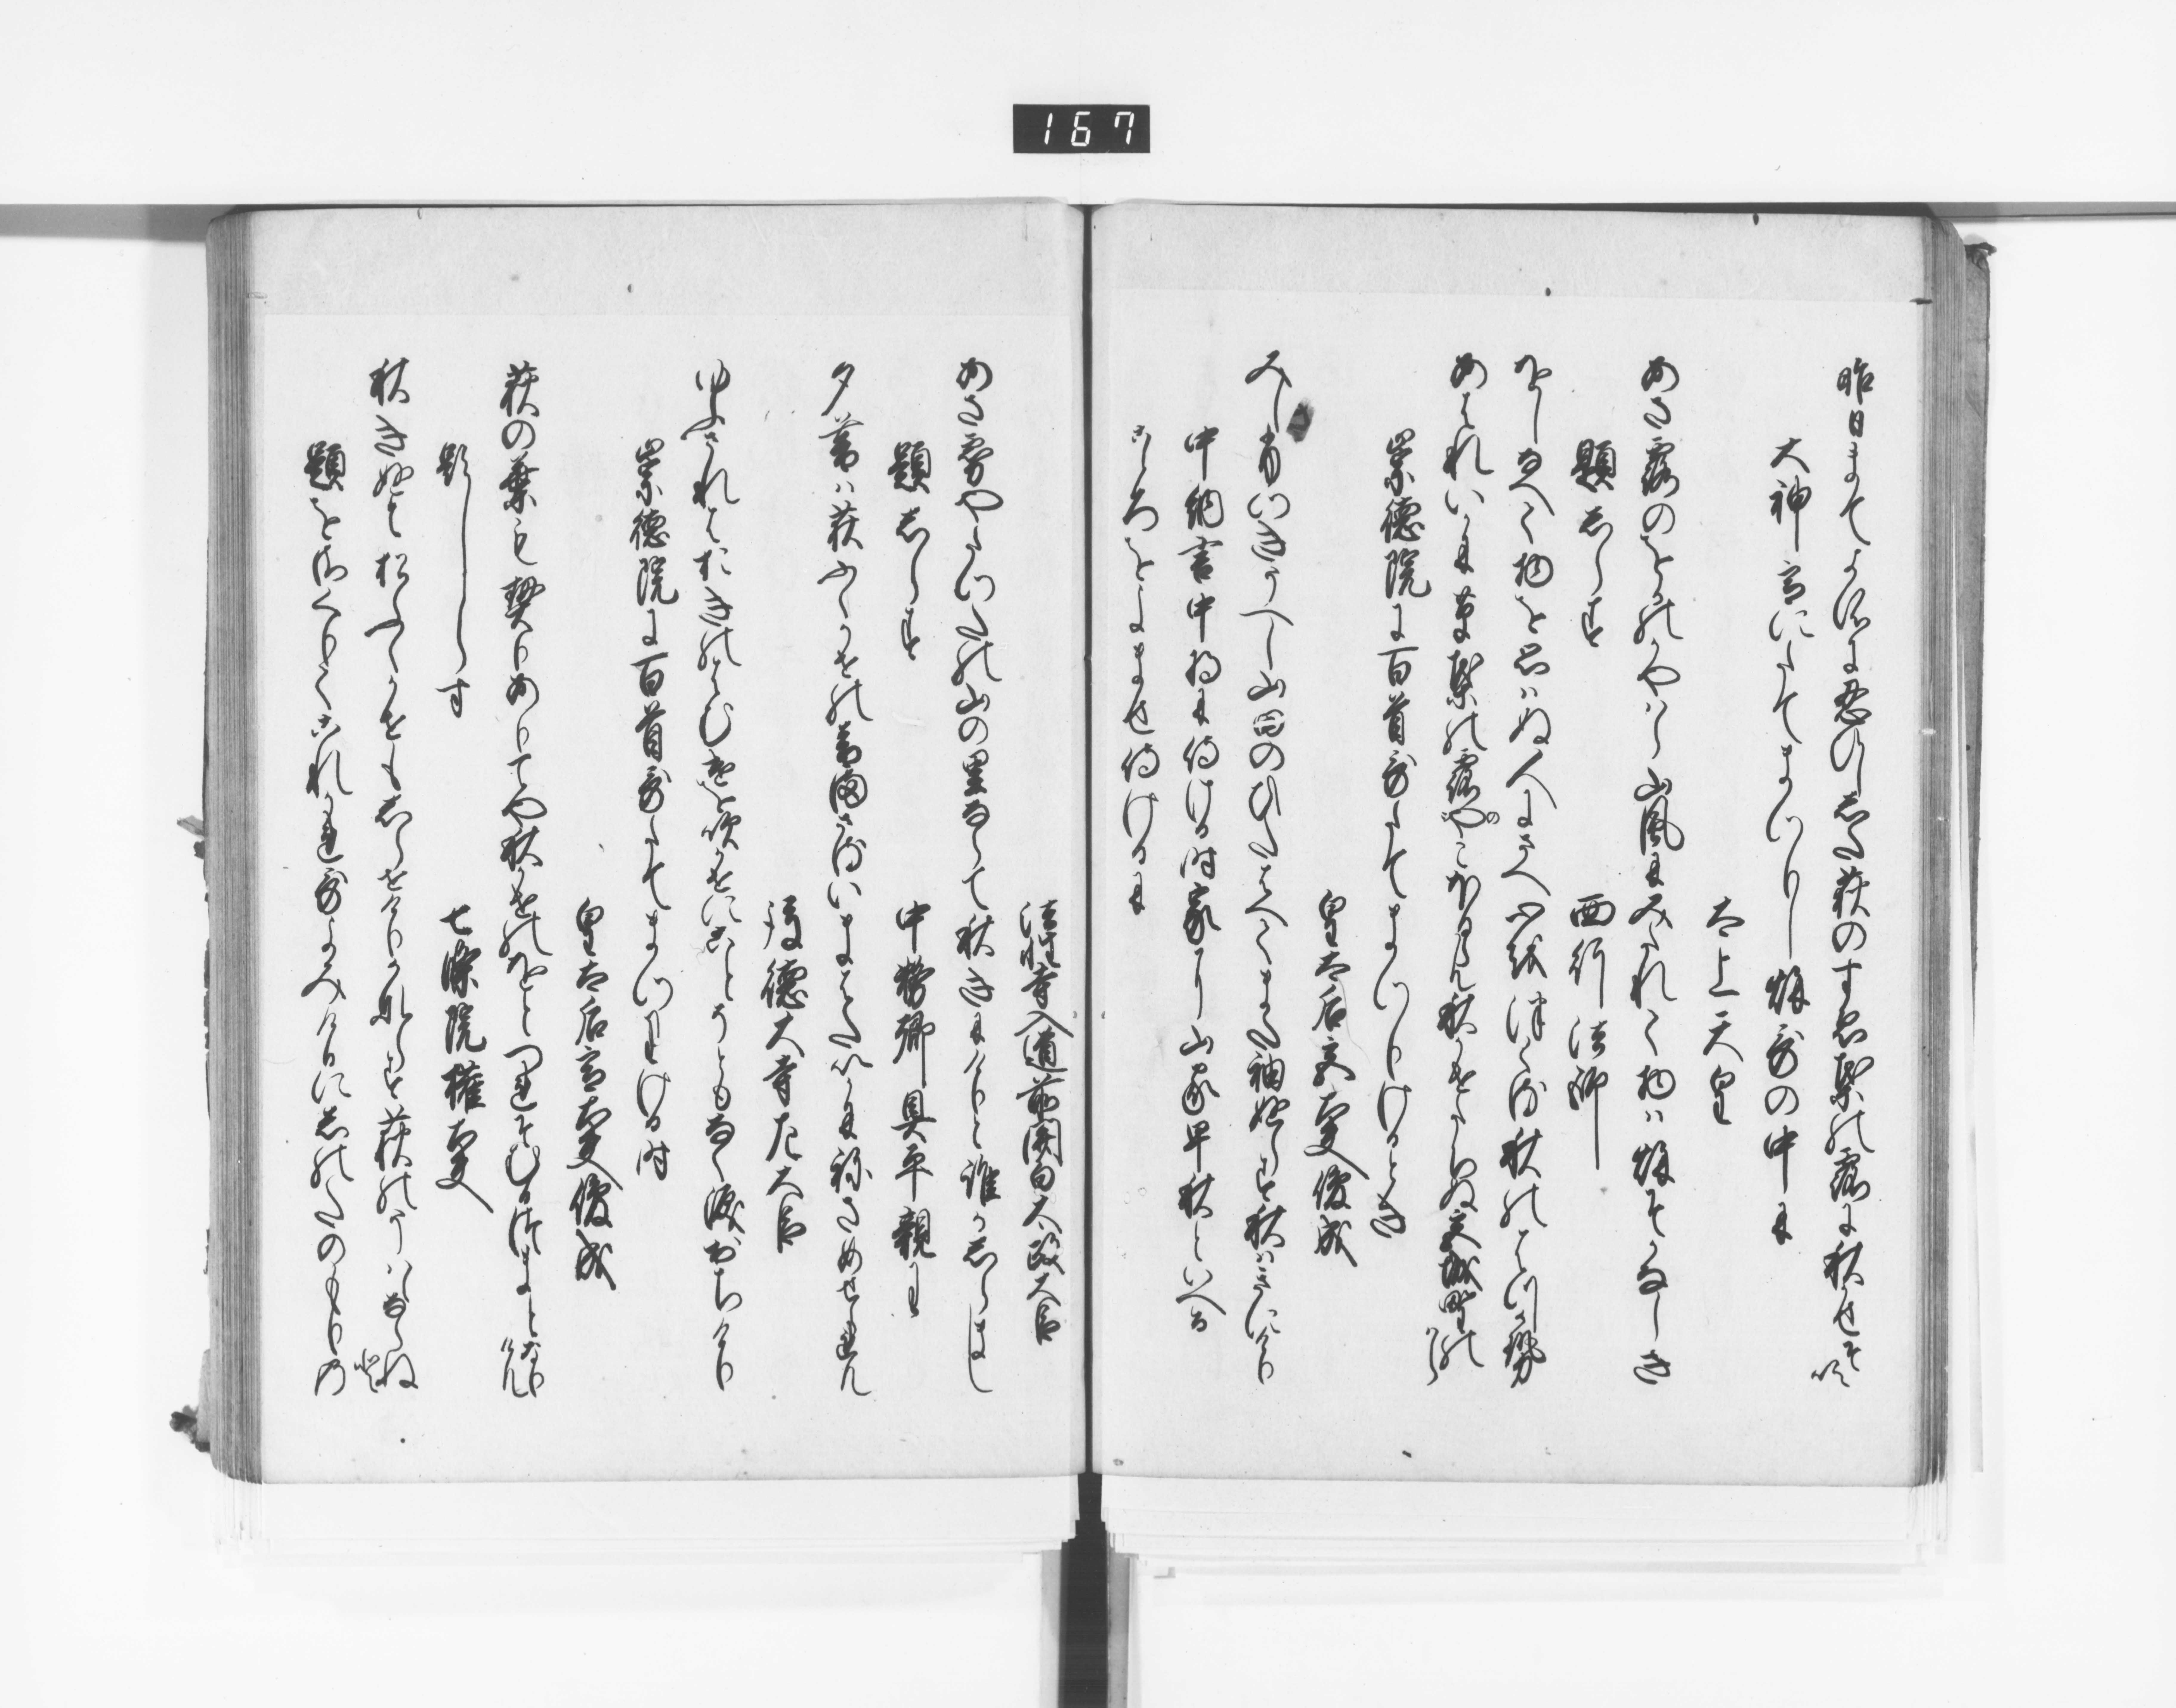 167
昨日まてよそに忍ひし下荻のすゑ葉の露に秋かせそ吹
大神宮にたてまつりし秋哥の中に
太上天皇
あさ露のをかのかやはら山風にみたれて物は秋そかなしき
題しらす
西行法師
をしなへて物を思はぬ人にさへ心をつくる秋のはつ風
あはれいかに草葉の露やのこほるらん秋風たちぬ宮城野のはら
崇徳院に百首哥たてまつりけるとき
皇太后宮大夫俊成
みしふつきうへし山田のひたはへてまた袖ぬらす秋はきにけり
中納言中将に侍ける時家に山家早秋といへる
こゝろをよませ侍けるに
法性寺入道前関白太政大臣
あさ霧やたつたの山の里ならて秋きにけりと誰かしらまし
題しらす
中務卿具平親王
夕暮は荻ふくかせの音まさる今はたいかにねさめせられん
後徳大寺左大臣
ゆふされはおきのはむけを吹かせにことそともなく涙おちけり
崇徳院に百首哥たてまつりける時
皇太后宮大夫俊成
荻の葉も契りありてや秋かせのをとつれそむるつまとなりけん
題しらす
七条院権大夫
秋きぬと松ふくかせもしらせけりかならす荻のうはならねと
題をさくりてこれかれ哥よみけるにしのたのもりの